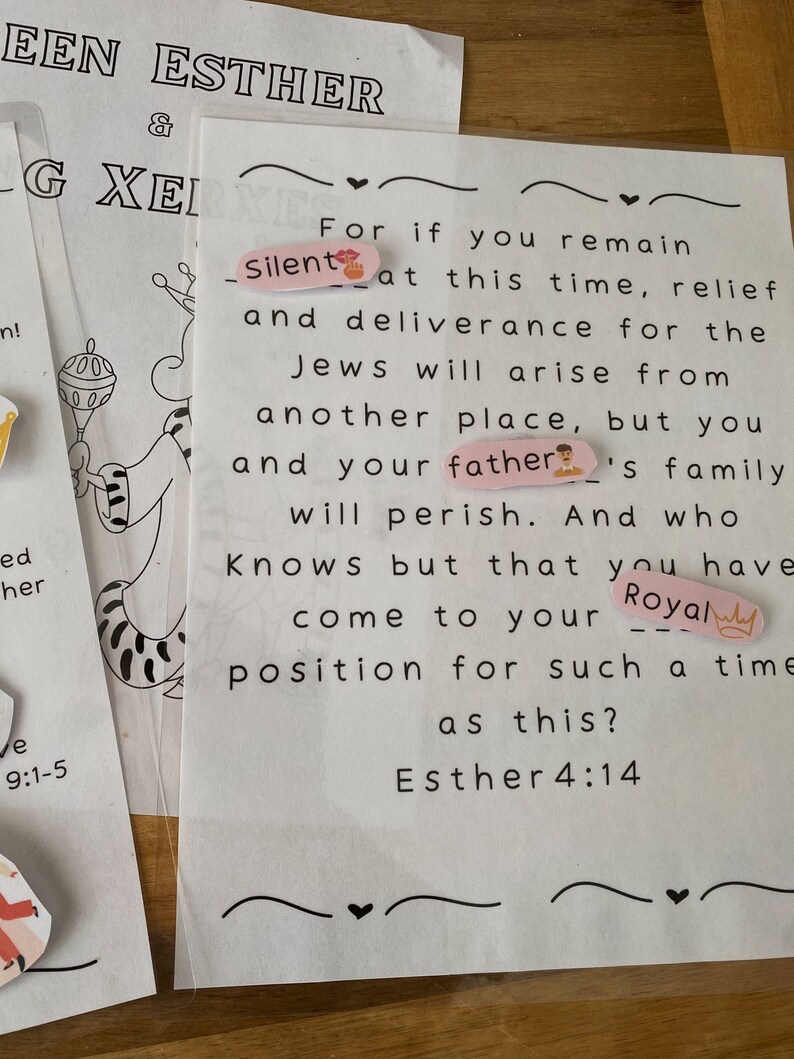 EEN ESTHER
&
G XERXES
n!
ed
her
ve
9:1-5
For if you remain
Silent at this time, relief
and deliverance for the
Jews will arise from
another place, but you
and your father's family
will perish. And who
Knows but that you have
come to your Royal
position for such a time
as this?
Esther 4:14